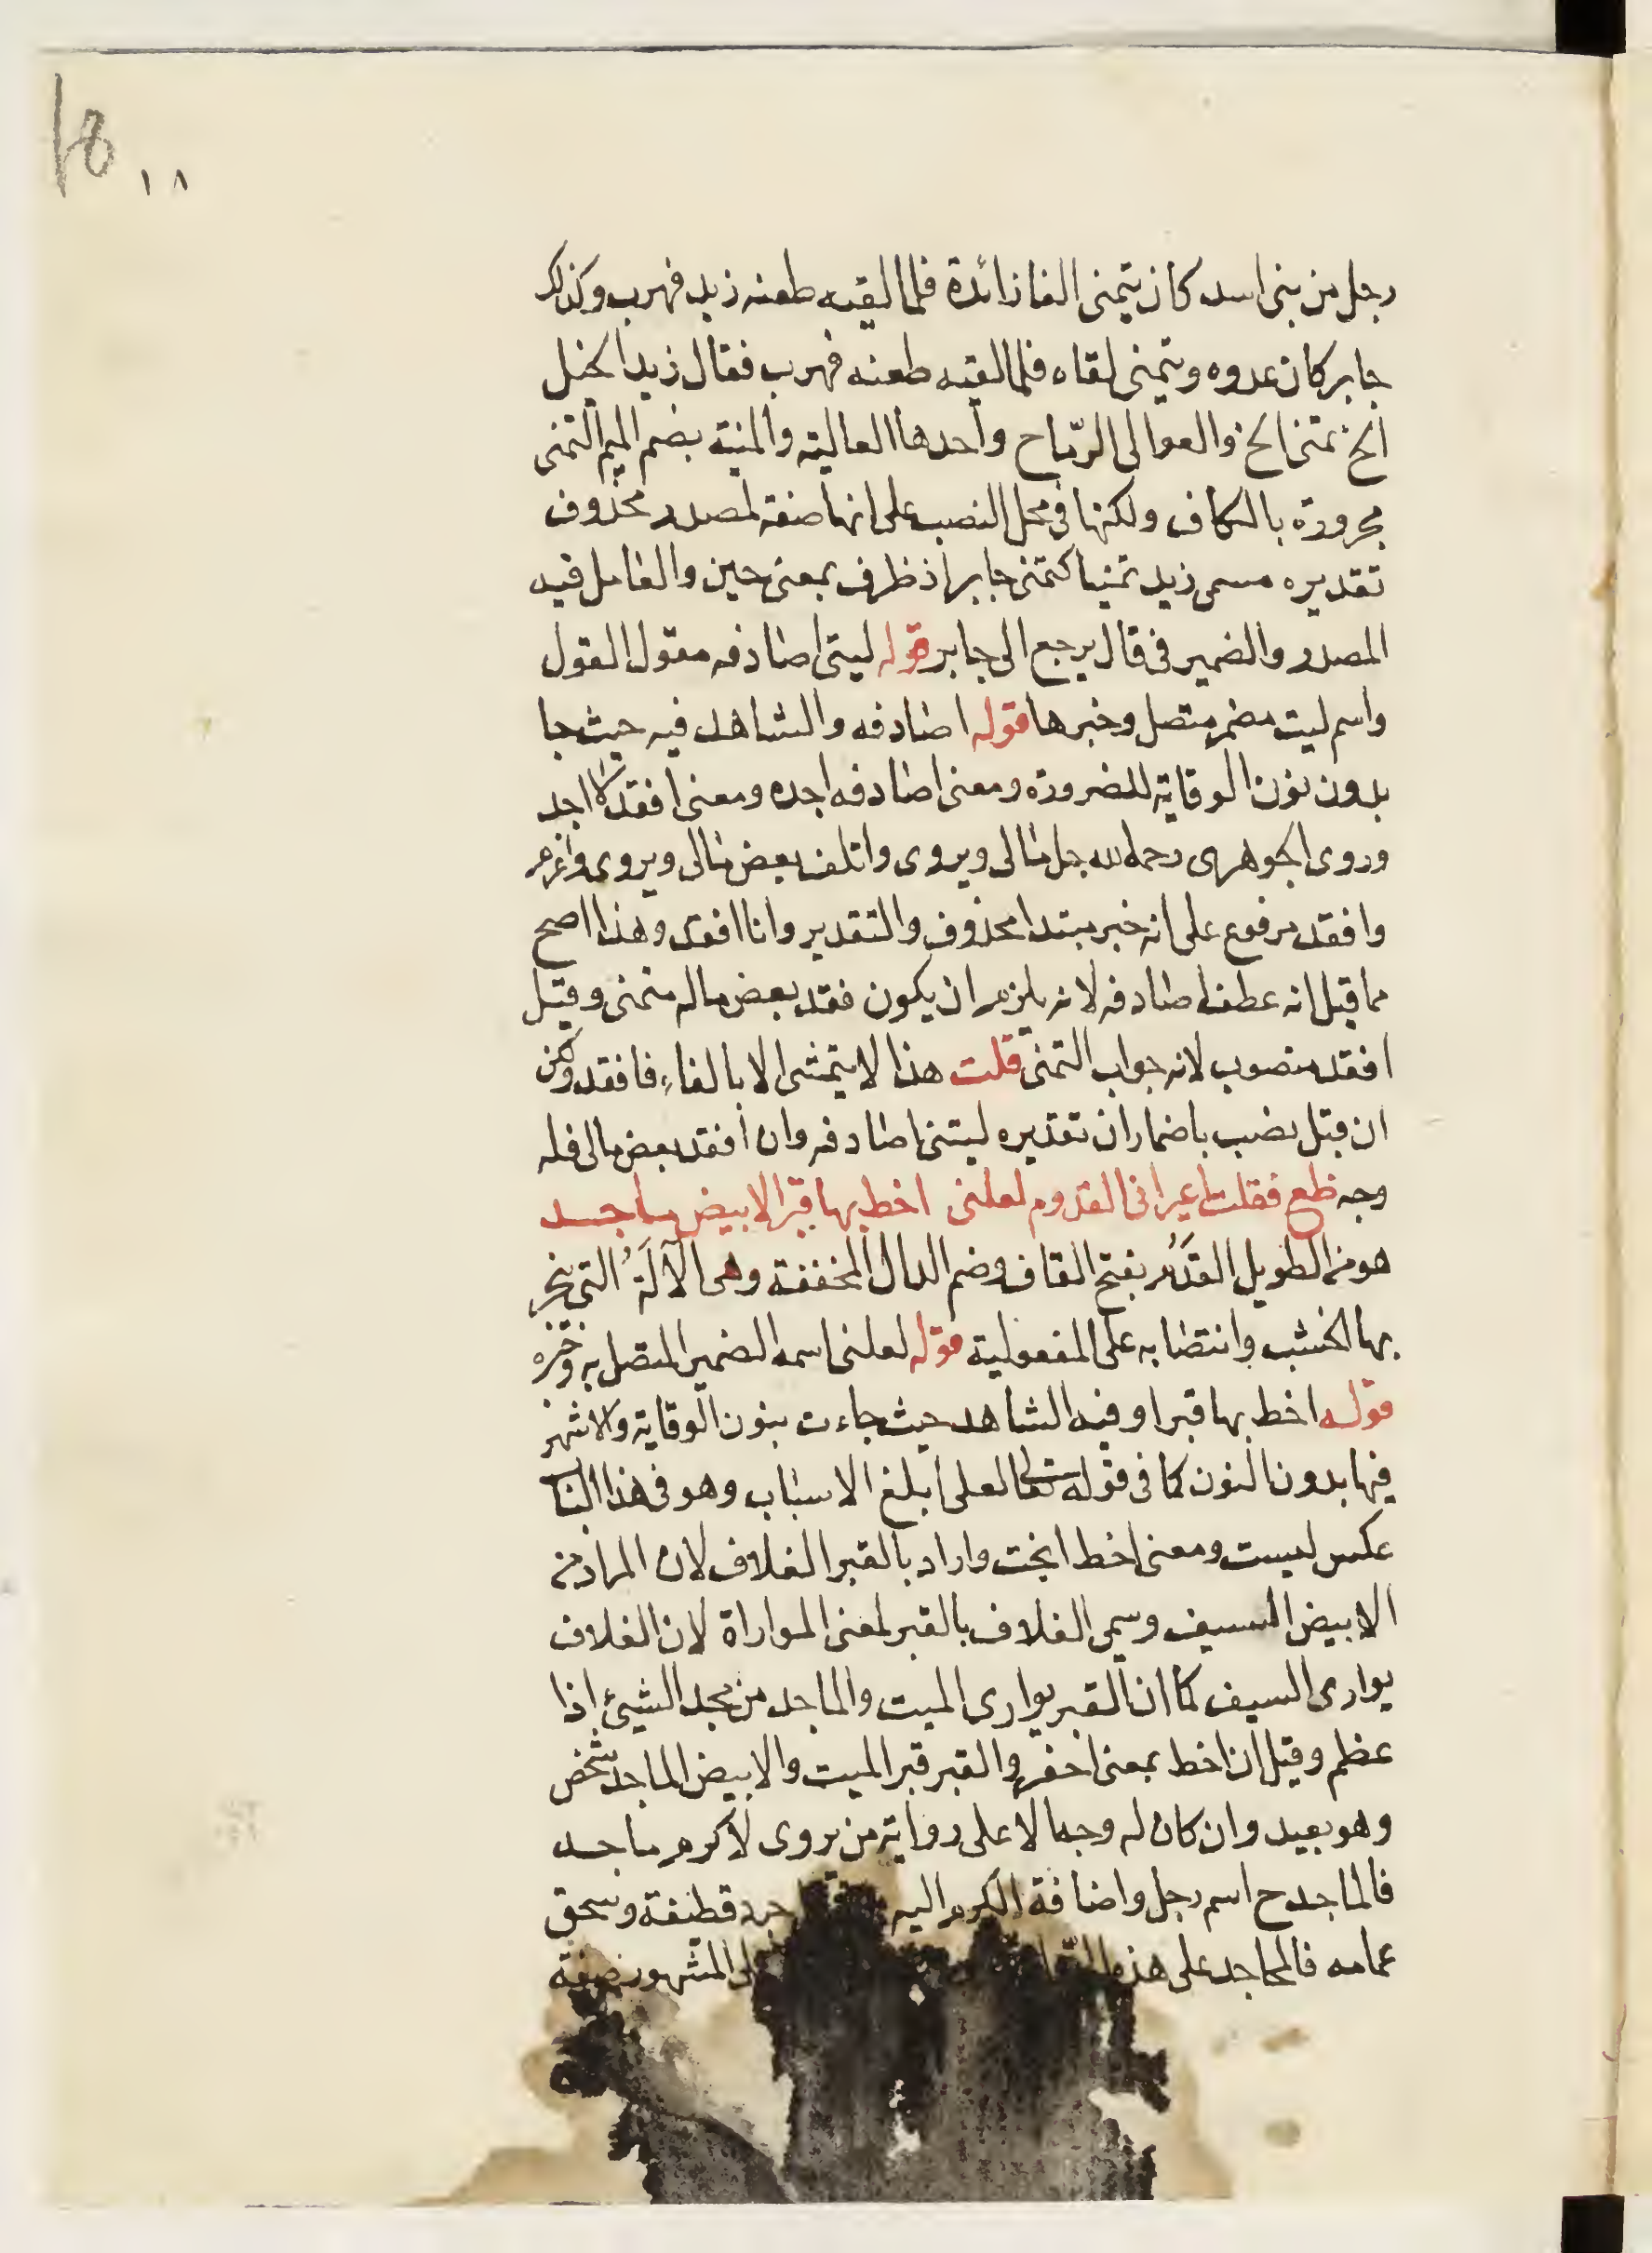 18 ١٨
رجل من بنى اسد كان يتمنى الفا زائدة فلما لقيه طعنه زيد فهرب وكذلك
جابر كان عدوه ويتمنى لقاه فلما لقيه طعنه فهرب فقال زيد الخيل
الخ تمنى الخ والعوالى الرماح واحدها العالية والمنية بضم الميم التمنى
مجرورة بالكاف ولكنها فى محل النصب على انها صفة لمصدر محذوف
تقديره تمنى زيد تمنيا كتمنى جابر اذ ظرف بمعنى حين والعامل فيه
المصدر والضمير فى قال يرجع الى جابر قوله ليتى اصادفه مقول القول
واسم ليت مضمر متصل وخبرها قوله اصادفه والشاهد فيه حيث جا
بدون نون الوقاية للضرورة ومعنى اصادفه اجده ومعنى افقد لا اجد
وروى الجوهرى رحمه الله جل مالى ويروى واتلف بعض مالى ويروى واغرم
وافقد مرفوع على انه خبر مبتدا محذوف والتقدير وانا افقد وهذا اصح
مما قيل انه عطف اصادفه لانه يلزم ان يكون فقد بعض ماله متمنى وقيل
افقد منصوب لانه جواب التمنى قلت هذا لا يتمشى الا بالفاء فافقد ولكن
ان قيل نصب باضمار ان تقديره ليتنى اصادفه وان افقد بعض مالى فله
وجه ظع فقلت اعيرانى القدوم لعلنى اخط بها قبرا لابيض ماجد
هو من الطويل القدُم بفتح القاف وضم الدال المخففة وهى الآلة التى ينجر
بها الخشب وانتصابه على المفعولية قوله لعلنى اسمه الضمير المتصل به وخبره
قوله اخط بها قبرا وفيه الشاهد حيث جاءت بنون الوقاية والاشهر
فيها بدون النون كما فى قوله تعالى لعلى ابلغ الاسباب وهو فى هذا الباب
عكس ليست ومعنى اخط انحت واراد بالقبر الغلاف لان المراد من
الابيض السيف وسمى الغلاف بالقبر لمعنى المواراة لان الغلاف
يوارى السيف كما ان القبر يوارى الميت والماجد من مجد الشيئ اذا
عظم وقيل ان اخط بمعنى احفر والقبر قبر الميت والابيض الماجد شخص
وهو بعيد وان كان له وجها لا على رواية من يروى لاكرم ماجد
فالماجد ح اسم رجل واضافة الكرم اليه جرد قطيفة وسحق
عمامه فالماجد على هذه المشهور صفة